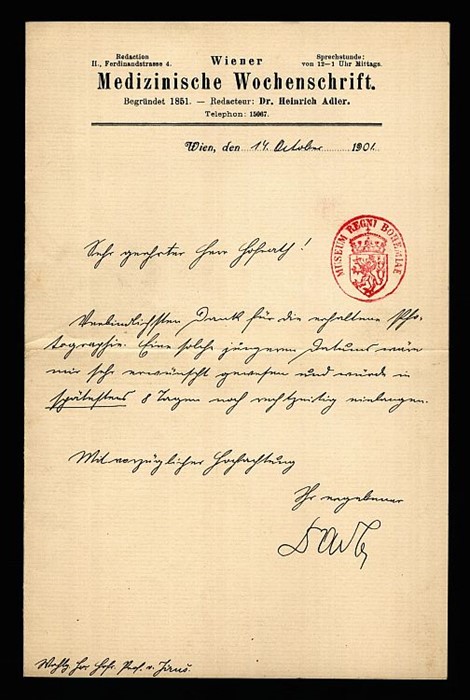 Redaction
II., Ferdinandstrasse 4.
Wiener
Sprechstunde:
von 12–1 Uhr Mittags.
Medizinische Wochenschrift.
Begründet 1851. — Redacteur: Dr. Heinrich Adler.
Telephon: 15067.
Wien, den 14. October 1901.
MUSEUM REGNI BOHEMIAE
Sehr geehrter Herr Hofrath!
Verbindlichsten Dank für die erhaltene Pho-
tographie. Eine solche jüngeren Datums wäre
mir sehr erwünscht gewesen und würde in
spätestens 8 Tagen noch rechtzeitig einlangen.
Mit vorzüglicher Hochachtung
Ihr ergebener
Hofr. Prof. v.